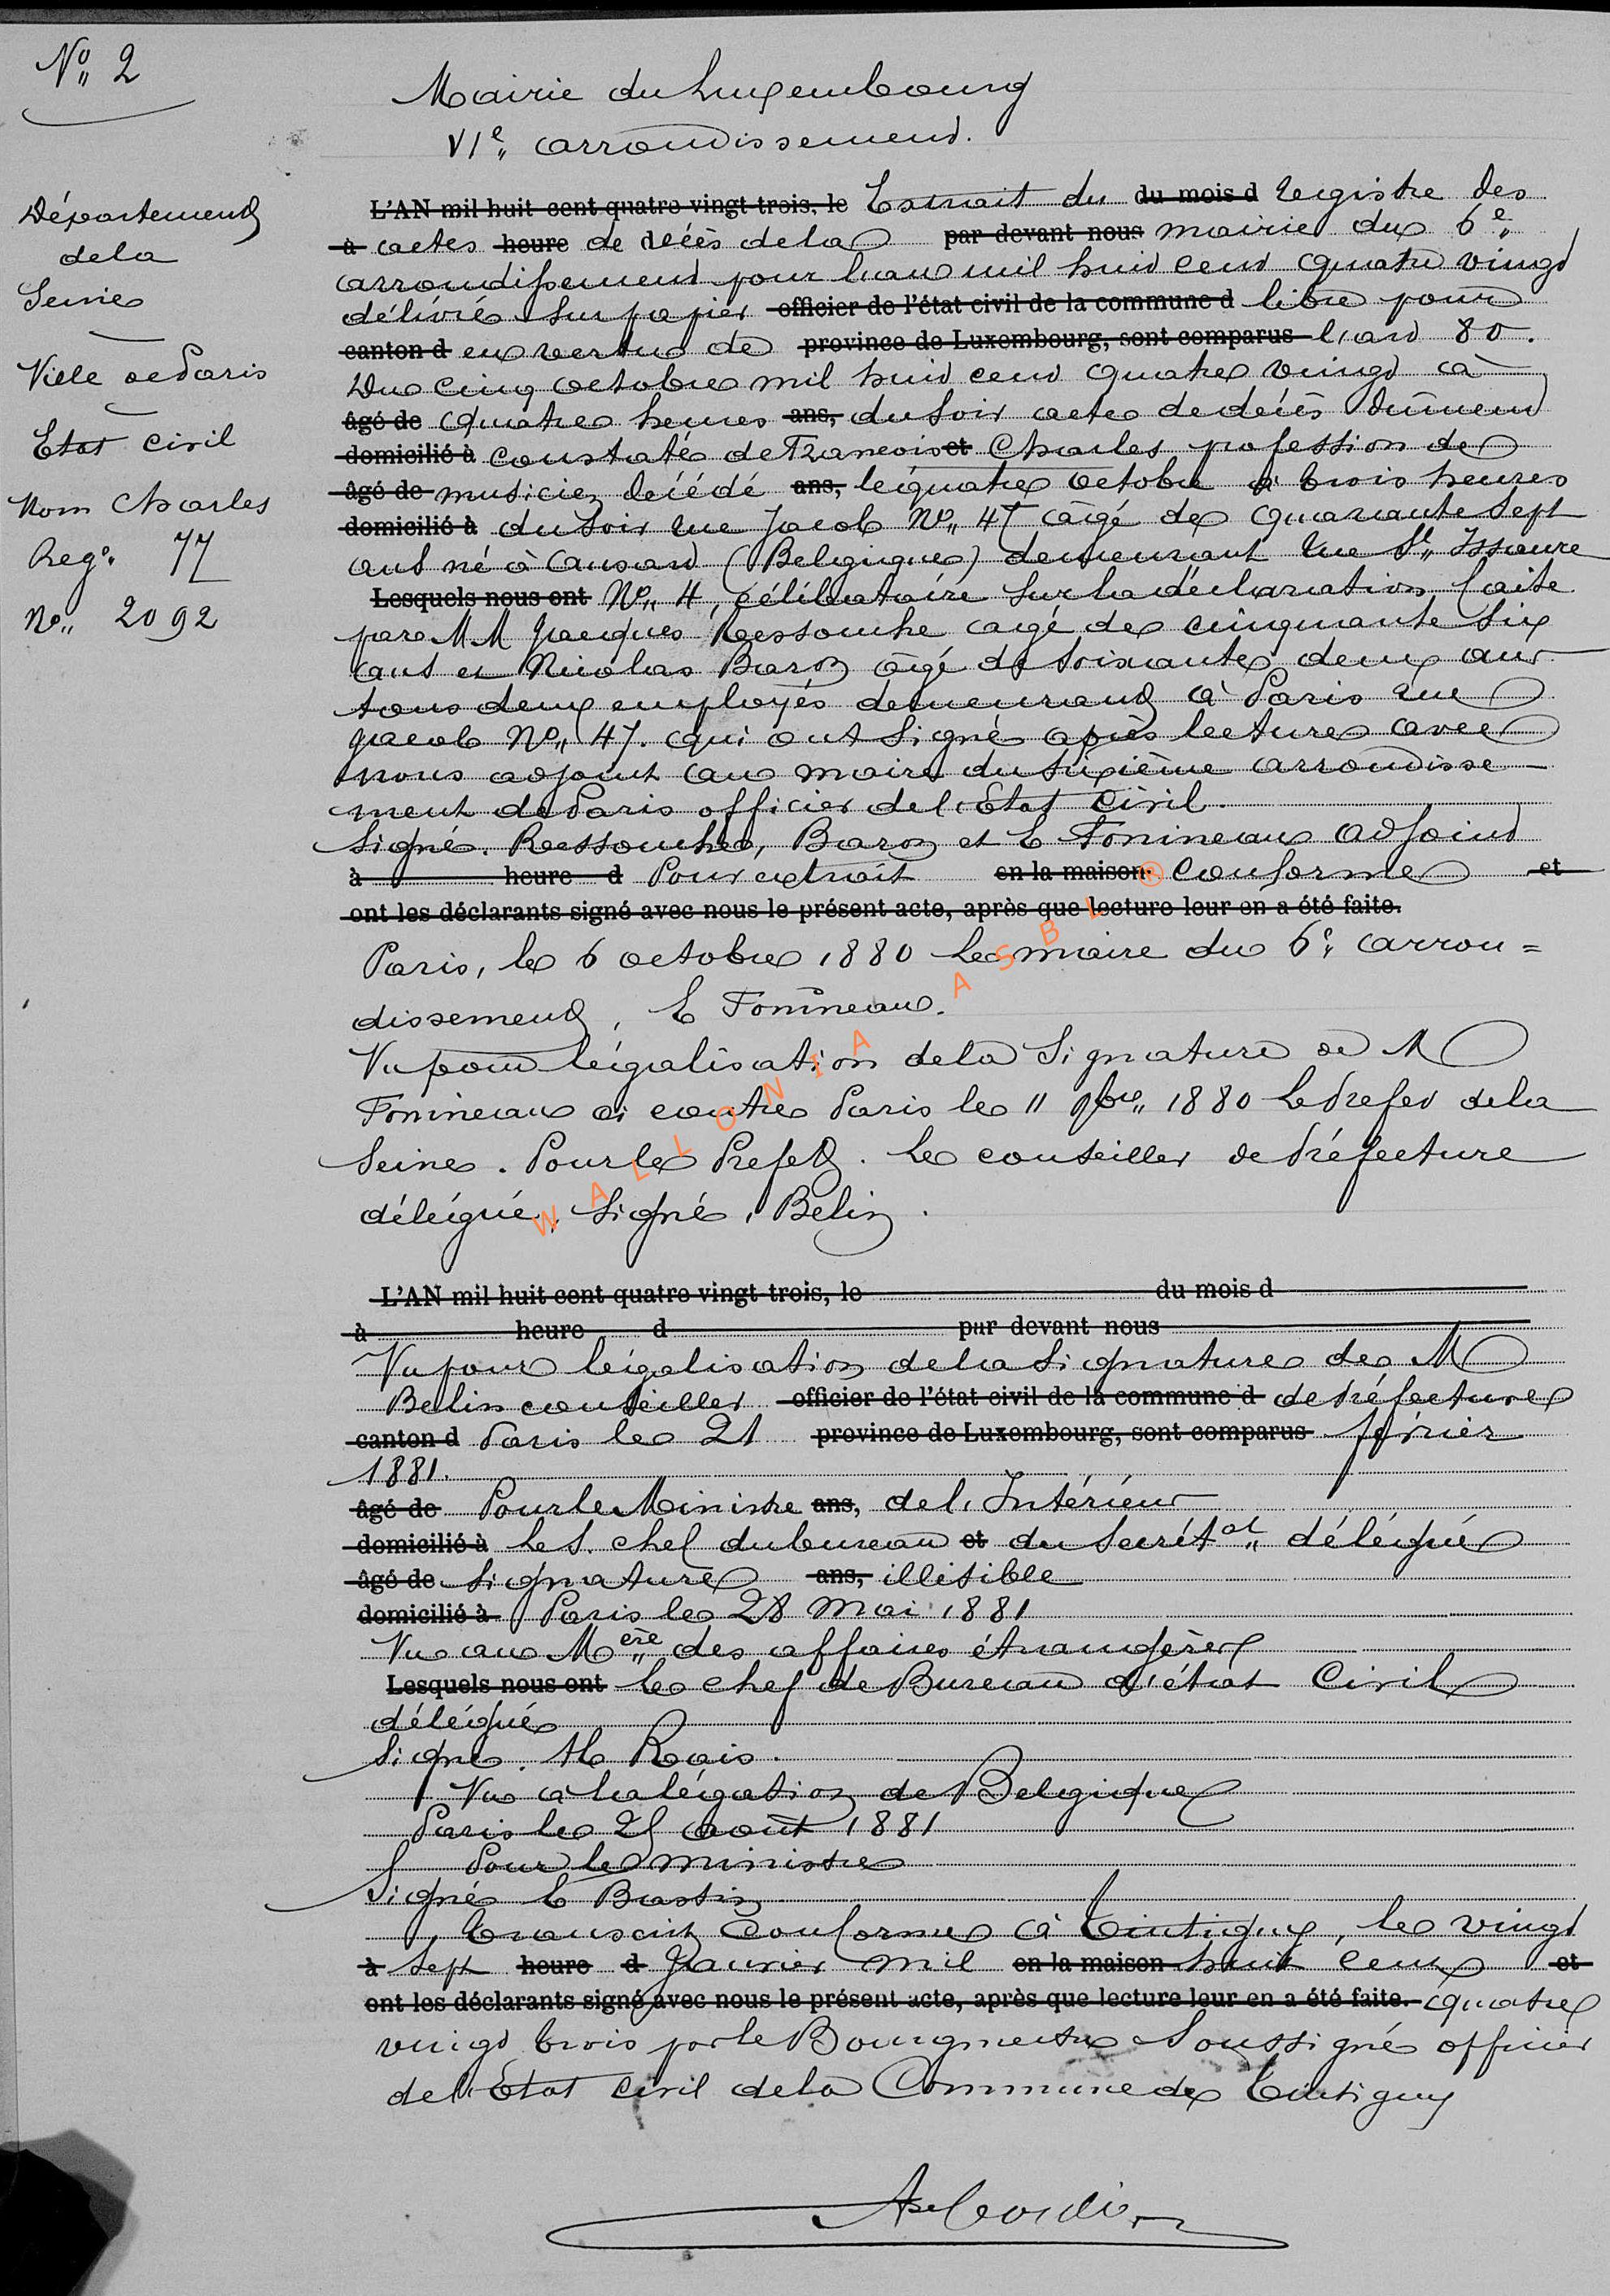 N° 2
Mairie du Luxembourg
VIe arrondissement.
Département
de la
Seine
Ville de Paris
Etat civil
Nom Charles
Reg° 77
N° 2092
L'AN mil huit cent quatre vingt-trois, le Extrait du du mois d registre des
à actes heure de décès de la par devant nous mairie du 6e
arrondissement pour l'an mil huit cent quatre vingt
délivré sur papier officier de l'état civil de la commune d libre pour
canton d en vertu de province de Luxembourg, sont comparus l'an 80.
Du cinq octobre mil huit cent quatre vingt à
âgé de quatre heures ans, du soir acte de décès dûment
domicilié à constaté de Francois et Charles profession de
âgé de musicien décédé ans, le quatre octobre à trois heures
domicilié à du soir rue Jacob N° 47 âgé de quarante sept
ans né à Ansart (Belgique) demeurant rue St Issaure
Lesquels nous ont N° 4, célibataire sur la déclaration faite
par MM Jacques Ressouche âgé de cinquante six
ans et Nicolas Baron âgé de soixante deux ans
tous deux employés demeurant à Paris rue
Jacob N° 47. qui ont signé après lecture avec
nous adjoint au maire du sixième arrondisse-
ment de Paris officier de l'Etat civil.
Signé. Ressouche, Baron et E Fonineau adjoint
à heure d Pour extrait en la maison conforme et
ont les déclarants signé avec nous le présent acte, après que lecture leur en a été faite.
Paris, le 6 octobre 1880 Le maire du 6e arron=
dissement, E Fonineau.
Vu pour légalisation de la signature de M
Fonineau ci contre Paris le 11 9bre 1880 Le Prefet de la
Seine. Pour le Prefet. Le conseiller de Préfecture
délégué, signé, Belin.
L'AN mil huit cent quatre vingt-trois, le du mois d
à heure d par devant nous
Vu pour légalisation de la signature de M
Belin conseiller officier de l'état civil de la commune d de Préfecture
canton d Paris le 21 province de Luxembourg, sont comparus février
1881.
âgé de Pour le Ministre ans, de l'Intérieur
domicilié à Le S. chef du bureau et du Secrétat délégué
âgé de signature ans, illisible
domicilié à Paris le 28 Mai 1881
Vu au Mere des affaires étrangères
Lesquels nous ont Le chef de Bureau d'état Civil
délégué
signé. Rais.
Vu à la légation de Belgique
Paris le 25 août 1881
Pour le ministre
Signé E Bastin
Transcrit conforme à Tintigny, le vingt
à sept heure d Janvier mil en la maison huit cent et
ont les déclarants signé avec nous le présent acte, après que lecture leur en a été faite. quatre
vingt trois par le Bourgmestre soussigné officier
de l'Etat civil de la Commune de Tintigny
WALLONIA ASBL ®